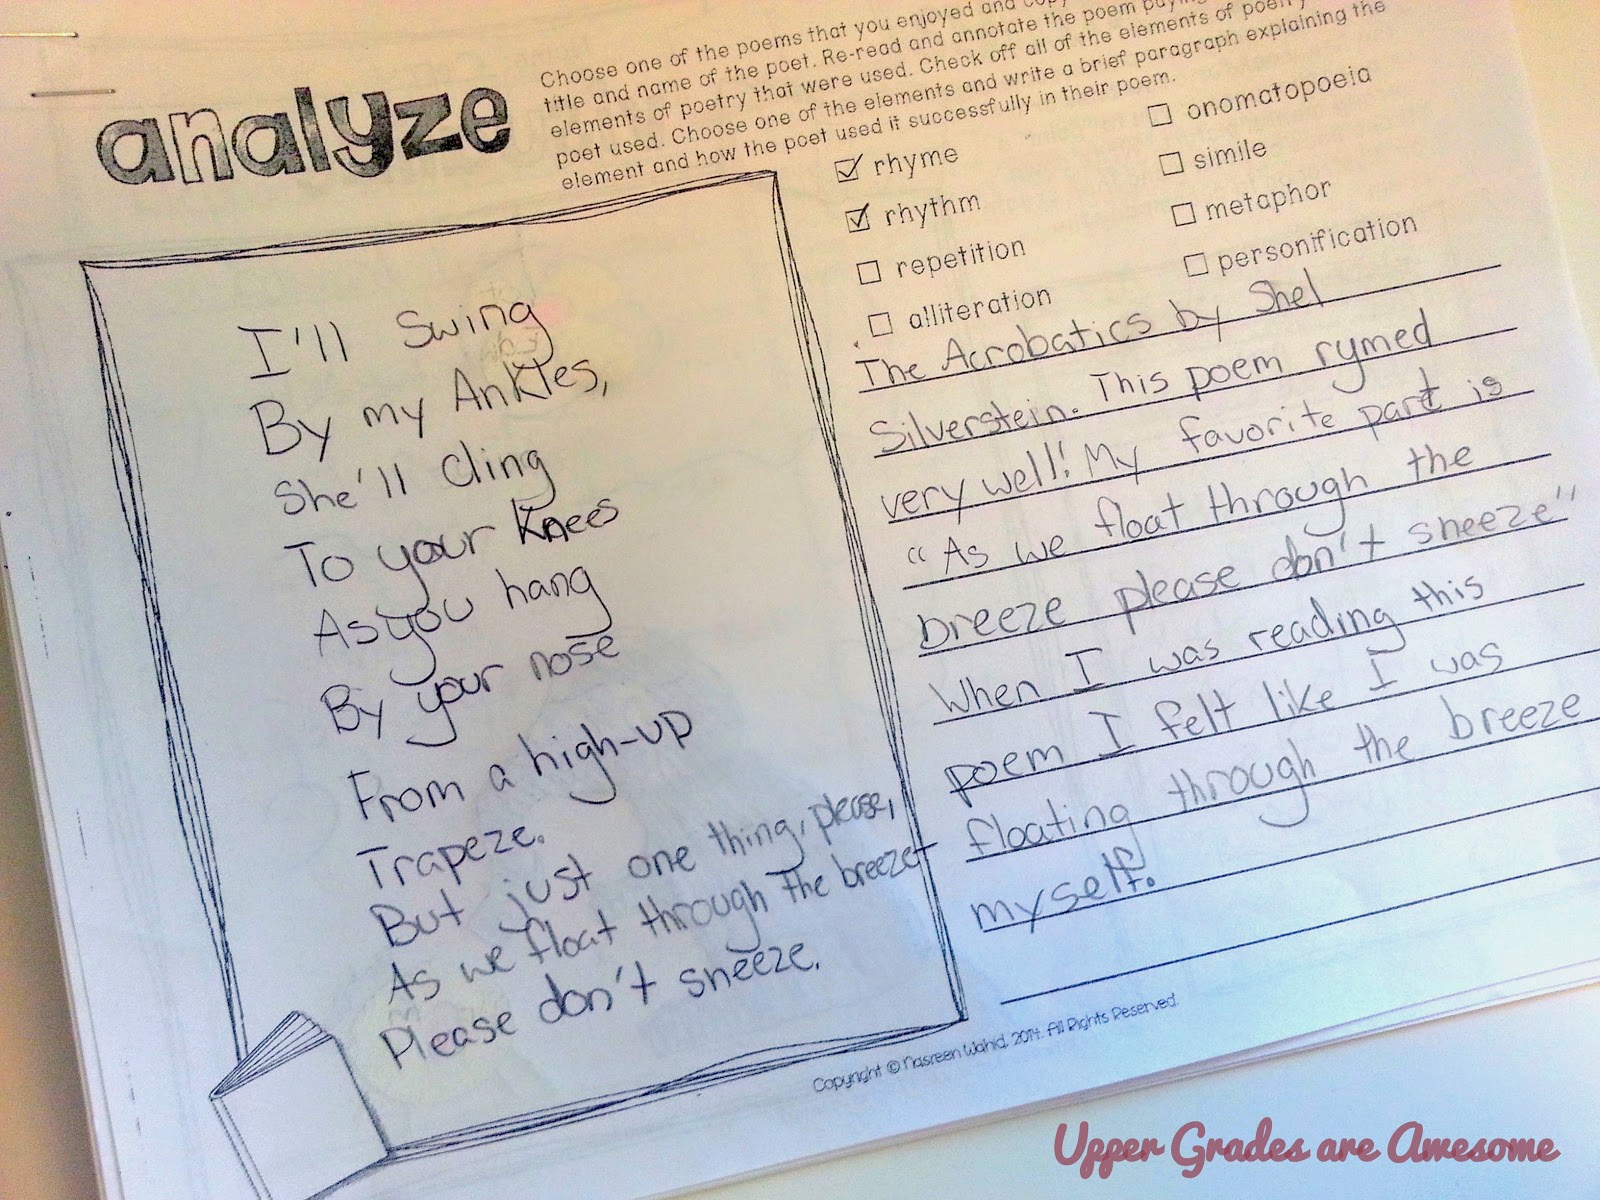 analyze
Choose one of the poems that you enjoyed and copy
title and name of the poet. Re-read and annotate the poem paying
elements of poetry that were used. Check off all of the elements of poetry
poet used. Choose one of the elements and write a brief paragraph explaining the
element and how the poet used it successfully in their poem.
rhyme
rhythm
repetition
alliteration
onomatopoeia
simile
metaphor
personification
I'll Swing
By my Ankles,
She'll Cling
To your knees
As you hang
By your nose
From a high-up
Trapeze.
But just one thing, please,
As we float through the breeze-
Please don't sneeze.
The Acrobatics by Shel
Silverstein. This poem rymed
very well! My favorite part is
"As we float through the
breeze please don't sneeze"
When I was reading this
poem I felt like I was
floating through the breeze
myself.
Copyright © Nasreen Wahid, 2014. All Rights Reserved.
Upper Grades are Awesome